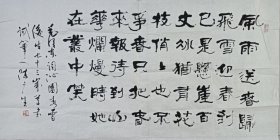 風雨送春歸
飛雪迎春到
已是懸崖百
丈冰猶有花
枝俏也不
爭春只把春
來報待到山
華爛熳時她
在叢中笑
毛澤東詞